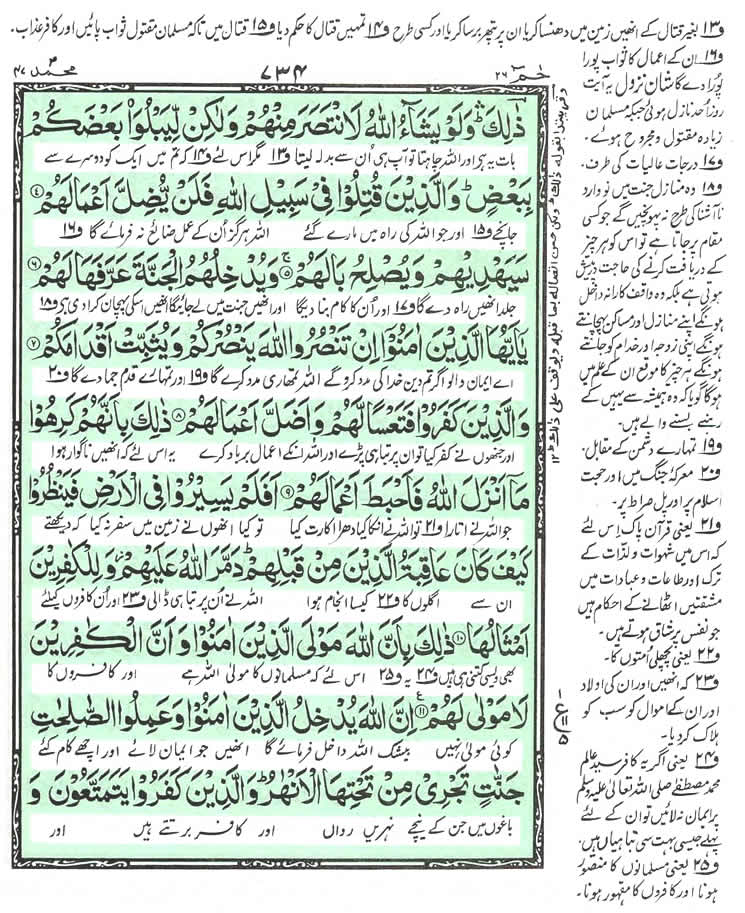 و۱۳ بغیر قتال کے انھیں زمین میں دھنسا کر یا ان پر پتھر برسا کر یا اور کسی طرح و۱۴ تمہیں قتال کا حکم دیا و۱۵ قتال میں تاکہ مسلمان مقتول ثواب پائیں اور کافر عذاب۔
محمد ۴۷
۷۳۴
حٰم ۲۶
ذٰلِكَ ۛؕ وَلَوْ يَشَآءُ اللّٰهُ لَانْتَصَرَ مِنْهُمْ وَلٰكِنْ لِّيَبْلُوَا۟ بَعْضَكُمْ
بات یہ ہے اور اللہ چاہتا تو آپ ہی اُن سے بدلہ لیتا و۱۳ مگر اس لئے و۱۴ کہ تم میں ایک کو دوسرے سے
بِبَعْضٍ ؕ وَالَّذِيْنَ قُتِلُوْا فِيْ سَبِيْلِ اللّٰهِ فَلَنْ يُّضِلَّ اَعْمَالَهُمْ ۴
جانچے و۱۵ اور جو اللہ کی راہ میں مارے گئے اللہ ہرگز اُن کے عمل ضائع نہ فرمائے گا و۱۶
سَيَهْدِيْهِمْ وَيُصْلِحُ بَالَهُمْ ۵ وَيُدْخِلُهُمُ الْجَنَّةَ عَرَّفَهَا لَهُمْ ۶
جلد انھیں راہ دے گا و۱۷ اور اُن کا کام بنا دیگا اور انھیں جنت میں لے جائیگا انھیں اسکی پہچان کرا دی ہے و۱۸
يٰٓاَيُّهَا الَّذِيْنَ اٰمَنُوْٓا اِنْ تَنْصُرُوا اللّٰهَ يَنْصُرْكُمْ وَيُثَبِّتْ اَقْدَامَكُمْ ۷
اے ایمان والو اگر تم دین خدا کی مدد کروگے اللہ تمہاری مدد کرے گا و۱۹ اور تمہارے قدم جما دے گا و۲۰
وَالَّذِيْنَ كَفَرُوْا فَتَعْسًا لَّهُمْ وَاَضَلَّ اَعْمَالَهُمْ ۸ ذٰلِكَ بِاَنَّهُمْ كَرِهُوْا
اور جنھوں نے کفر کیا تو ان پر تباہی پڑے اور اللہ انکے اعمال برباد کرے یہ اس لئے کہ انھیں ناگوار ہوا
مَآ اَنْزَلَ اللّٰهُ فَاَحْبَطَ اَعْمَالَهُمْ ۹ اَفَلَمْ يَسِيْرُوْا فِي الْاَرْضِ فَيَنْظُرُوْا
جو اللہ نے اتارا و۲۱ تو اللہ نے انکا کیا دھرا اکارت کیا تو کیا انھوں نے زمین میں سفر نہ کیا کہ دیکھتے
كَيْفَ كَانَ عَاقِبَةُ الَّذِيْنَ مِنْ قَبْلِهِمْ ؕ دَمَّرَ اللّٰهُ عَلَيْهِمْ ۫ وَلِلْكٰفِرِيْنَ
ان سے اگلوں کا و۲۲ کیسا انجام ہوا اللہ نے اُن پر تباہی ڈالی و۲۳ اور اُن کافروں کیلئے
اَمْثَالُهَا ۱۰ ذٰلِكَ بِاَنَّ اللّٰهَ مَوْلَى الَّذِيْنَ اٰمَنُوْا وَاَنَّ الْكٰفِرِيْنَ
بھی ویسی کتنی ہی ہیں و۲۴ یہ و۲۵ اس لئے کہ مسلمانوں کا مولیٰ اللہ ہے اور کافروں کا
لَا مَوْلٰى لَهُمْ ۱۱ اِنَّ اللّٰهَ يُدْخِلُ الَّذِيْنَ اٰمَنُوْا وَعَمِلُوا الصّٰلِحٰتِ
کوئی مولیٰ نہیں بیشک اللہ داخل فرمائے گا انھیں جو ایمان لائے اور اچھے کام کئے
جَنّٰتٍ تَجْرِيْ مِنْ تَحْتِهَا الْاَنْهٰرُ ؕ وَالَّذِيْنَ كَفَرُوْا يَتَمَتَّعُوْنَ وَ
باغوں میں جن کے نیچے نہریں رواں اور کافر برتتے ہیں اور
و۱۶ ان کے اعمال کا ثواب پورا
پورا دے گا شان نزول یہ آیت
روز اُحد نازل ہوئی جبکہ مسلمان
زیادہ مقتول و مجروح ہوئے۔
و۱۷ درجات عالیات کی طرف۔
و۱۸ وہ منازل جنت میں نو وارد
نا آشنا کی طرح نہ پہونچیں گے جو کسی
مقام پر جاتا ہے تو اس کو ہر چیز
کے دریافت کرنے کی حاجت درپیش
ہوتی ہے بلکہ وہ واقف کارانہ داخل
ہونگے اپنے منازل اور مساکن پہچانتے
ہونگے اپنی زوجہ اور خدام کو جانتے
ہونگے ہر چیز کا موقع ان کے علم میں
ہوگا گویا کہ وہ ہمیشہ سے یہیں کے
رہنے بسنے والے ہیں۔
و۱۹ تمہارے دشمن کے مقابل۔
و۲۰ معرکۂ جنگ میں اور حجت
اسلام پر اور پل صراط پر۔
و۲۱ یعنی قرآن پاک اس لئے
کہ اس میں شہوات و لذات کے
ترک اور طاعات و عبادات میں
مشقتیں اٹھانے کے احکام ہیں
جو نفس پر شاق ہوتے ہیں۔
و۲۲ یعنی پچھلی اُمتوں کا۔
و۲۳ کہ انھیں اور ان کی اولاد
اور ان کے اموال کو سب کو
ہلاک کر دیا۔
و۲۴ یعنی اگر یہ کافر سیدِ عالم
محمد مصطفےٰ صلی اللہ تعالیٰ علیہ وسلم
پر ایمان نہ لائیں تو ان کے لئے
پہلے جیسی بہت سی تباہیاں ہیں۔
و۲۵ یعنی مسلمانوں کا منصور
ہونا اور کافروں کا مقہور ہونا۔